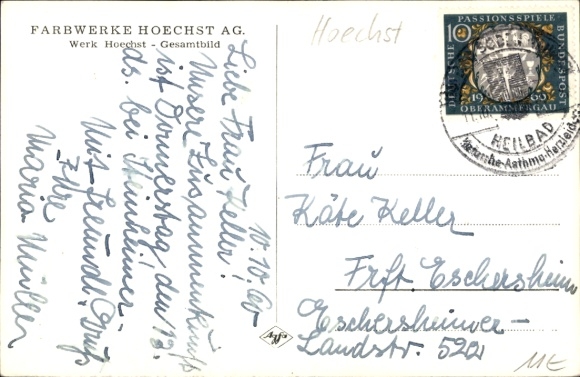 FARBWERKE HOECHST AG.
Werk Hoechst - Gesamtbild
Hoechst
10.10.60
Liebe Frau Keller!
Unsere Zusammenkunft
ist Donnerstag, den 13.
ds. bei Steinheimer-
Mit freundl. Gruß
Ihre
Maria Müller
DEUTSCHE BUNDESPOST
PASSIONSSPIELE
10
1960
OBERAMMERGAU
HEILBAD
Katarrhe-Asthma-Herzleiden
Frau
Käte Keller
Frft. Eschersheim
Eschersheimer-
Landstr. 522
11E